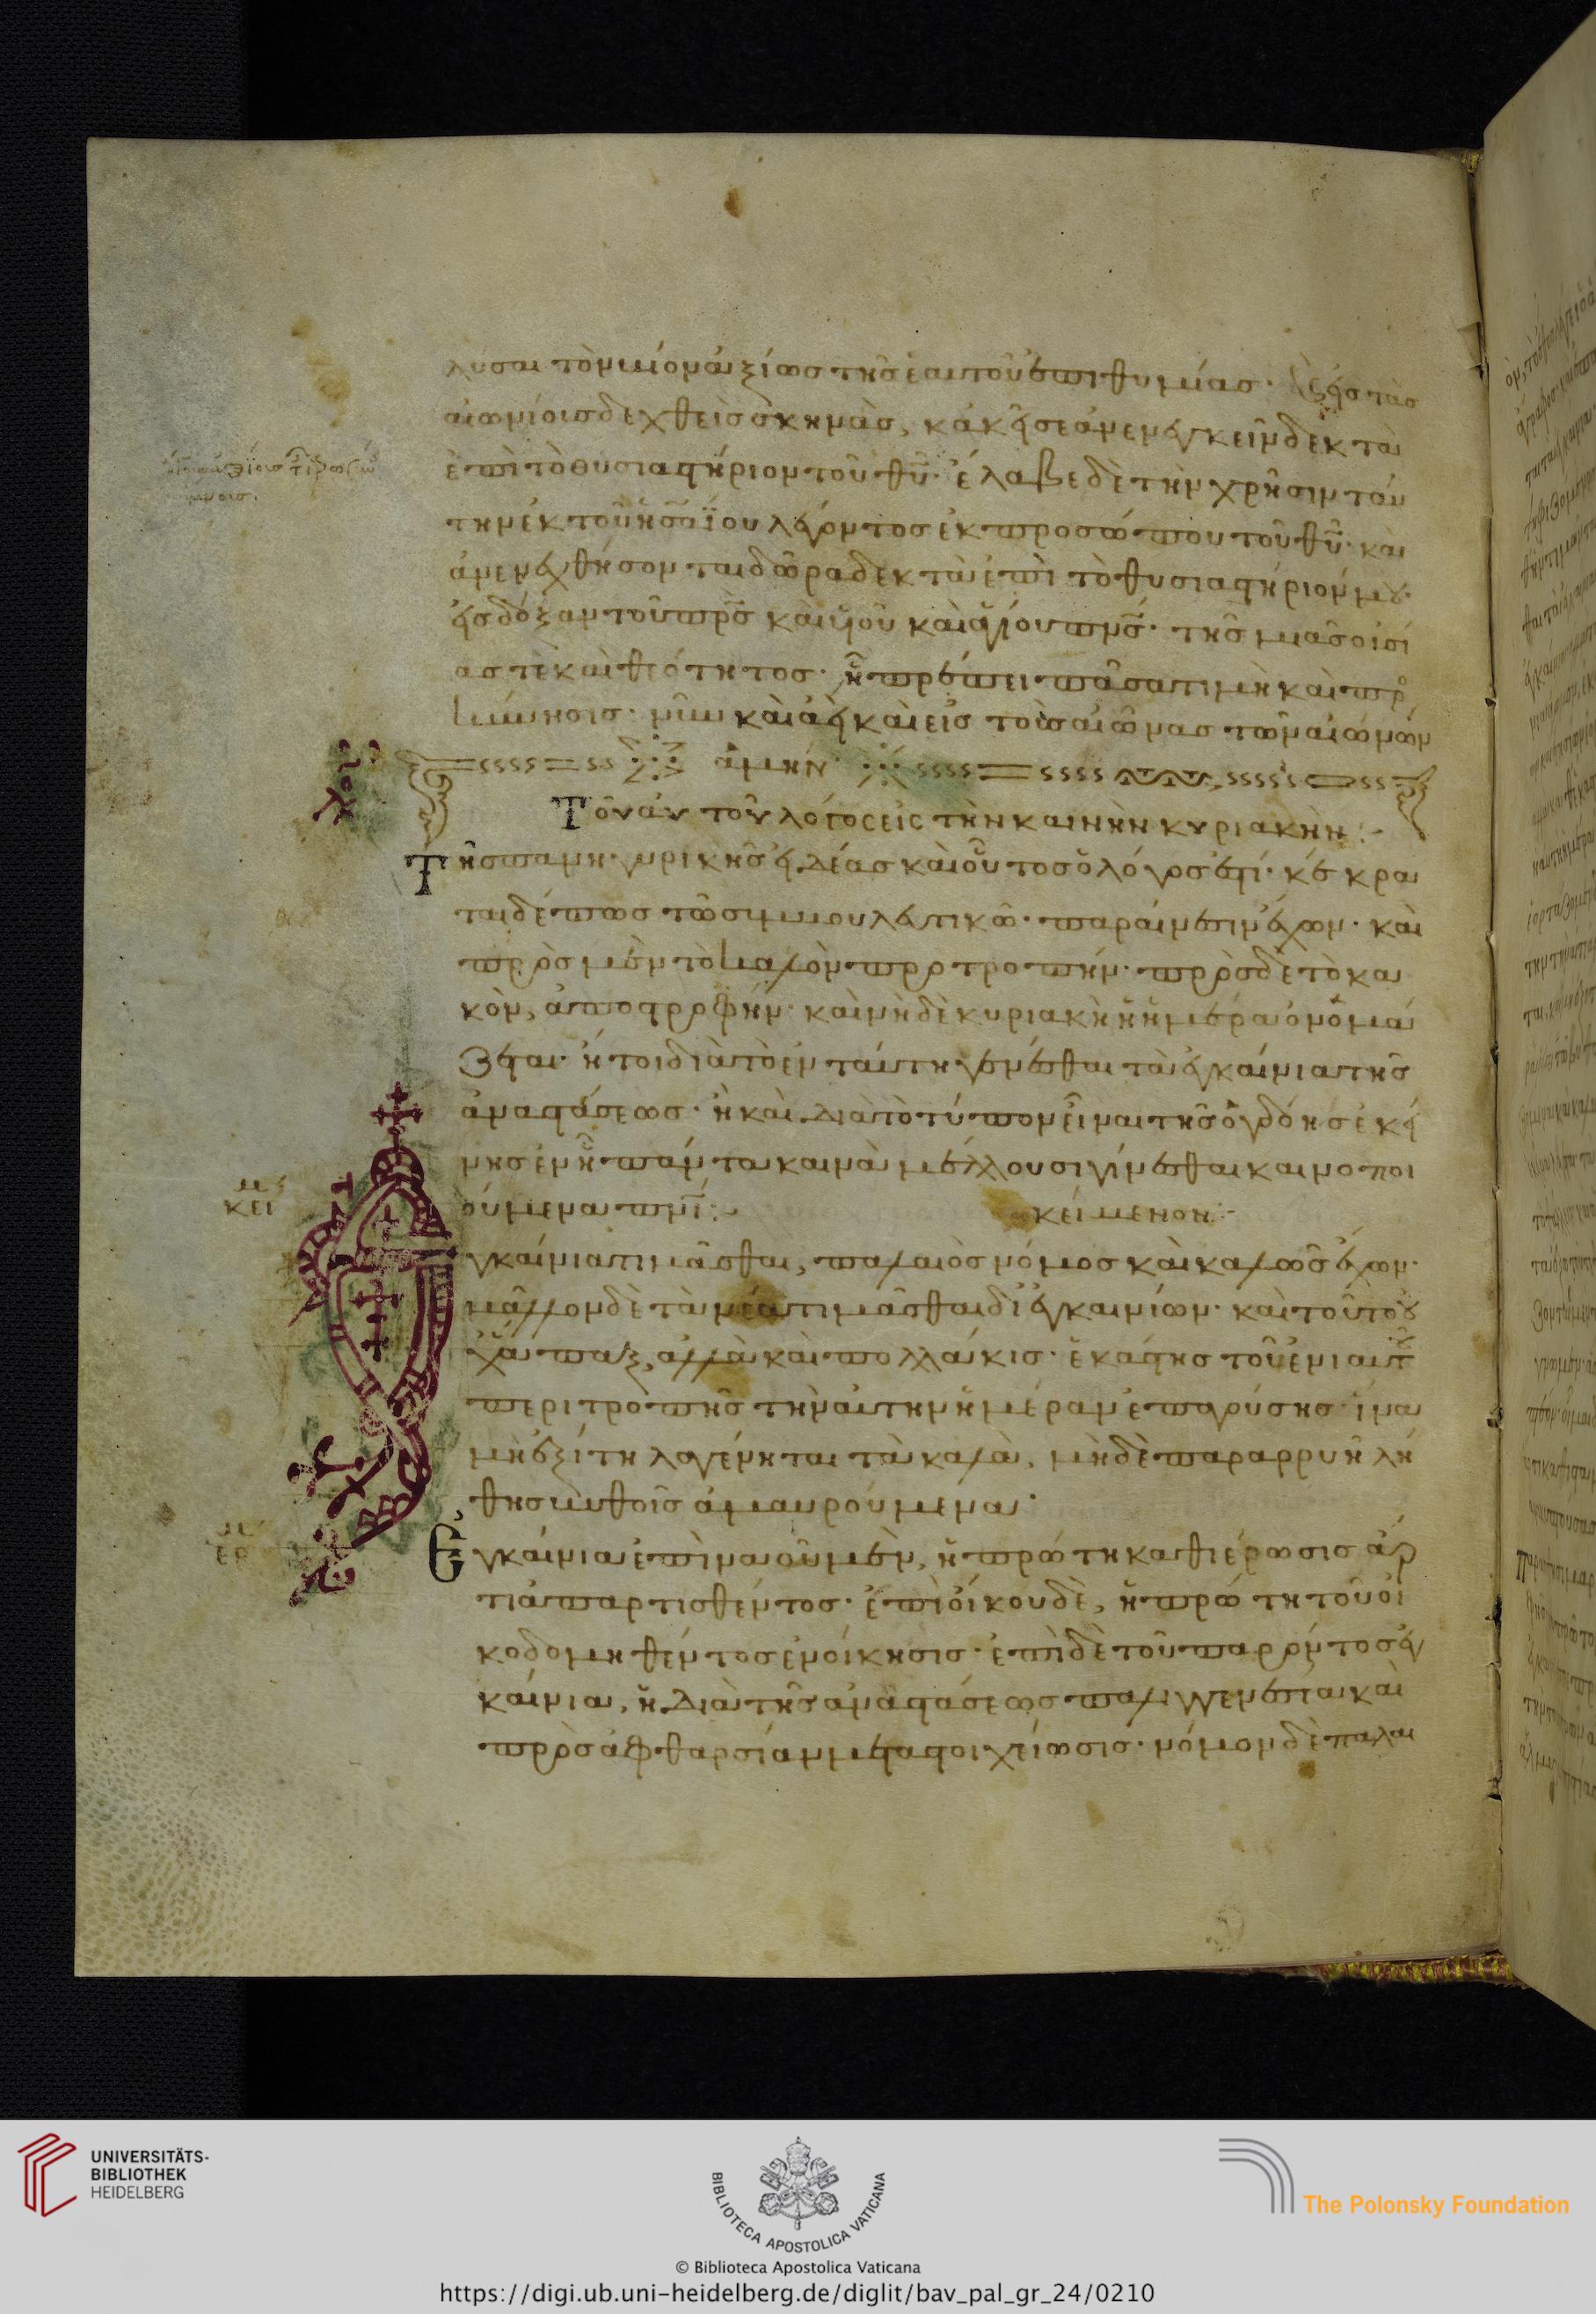 λῦσαι τὸν υἱὸν ἀξίως τῆς ἑαυτοῦ ἐπιθυμίας·
αἰωνίοις δεχθεὶς σκηνὰς, κἀκεῖσε ἀνενεγκεῖν δεκτὰ
ἐπὶ τὸ θυσιαστήριον τοῦ θῦ· ἔλαβε δὲ τὴν χρῆσιν ταύ
την ἐκ τοῦ ἡσαΐου λέγοντος ἐκ προσώπου τοῦ θῦ· καὶ
ἀνενεχθήσονται δῶρα δεκτὰ ἐπὶ τὸ θυσιαστήριόν μου·
εἰς δόξαν τοῦ πρς καὶ υἱοῦ καὶ ἁγίου πνς· τῆς μιᾶς οὐσί
ας τὲ καὶ θεότητος· ᾗ πρέπει πᾶσα τιμὴ καὶ προ
κύνησις· νῦν καὶ ἀεὶ καὶ εἰς τοὺς αἰῶνας τῶν αἰώνων
ἀμήν·
Τοῦ αὐτοῦ λόγος εἰς τὴν καινὴν κυριακήν :-
Τῆς πανηγυρικῆς ἰδέας καὶ οὗτος ὁ λόγος ἐστί· κέκρα
ται δέ πως τῶ συμβουλευτικῶ· παραίνεσιν ἔχων· καὶ
πρὸς μὲν τὸ καλὸν προτροπήν· πρὸς δὲ τὸ κα
κὸν, ἀποστροφήν· καινὴ δὲ κυριακὴ ἡ ἡμέρα ὀνομά
ζεται· ἤτοι διὰ τὸ ἐν ταύτη γενέσθαι τὰ ἐγκαίνια τῆς
ἀναστάσεως· ἢ καὶ διὰ τὸ τύπον εἶναι τῆς ὀγδόης ἐκεί
νης ἐν ᾗ πάντα καινὰ μέλλουσι γίνεσθαι καινοποι
ούμενα πνι :-
κείμενον :-
κει
γκαίνια τιμᾶσθαι, παλαιὸς νόμος καὶ καλῶς ἔχων·
μᾶλλον δὲ τὰ νέα τιμᾶσθαι δι' ἐγκαινίων· καὶ τοῦτο οὐ
χ' ἅπαξ, ἀλλὰ καὶ πολλάκις· ἑκάστης τοῦ ἐνιαυτ
περιτροπῆς τὴν αὐτὴν ἡμέραν ἐπαγούσης· ἵνα
μὴ ἐξίτηλα γένηται τὰ καλὰ, μηδὲ παραρρυῆ λή
θης βυθοῖς ἀμαυρούμενα·
ερ
Ἐγκαίνια ἐπὶ ναοῦ μὲν, ἡ πρώτη καθιέρωσις ἄρ
τι ἀπαρτισθέντος· ἐπὶ οἴκου δὲ, ἡ πρώτη τοῦ οἰ
κοδομηθέντος ἐνοίκησις· ἐπὶ δὲ τοῦ παρόντος ἐγ
καίνια, ἡ διὰ τῆς ἀναστάσεως παλιγγενεσία καὶ
πρὸς ἀφθαρσίαν μεταστοιχείωσις· νόμον δὲ παλαι
UNIVERSITÄTS-
BIBLIOTHEK
HEIDELBERG
BIBLIOTECA APOSTOLICA VATICANA
The Polonsky Foundation
© Biblioteca Apostolica Vaticana
https://digi.ub.uni-heidelberg.de/diglit/bav_pal_gr_24/0210